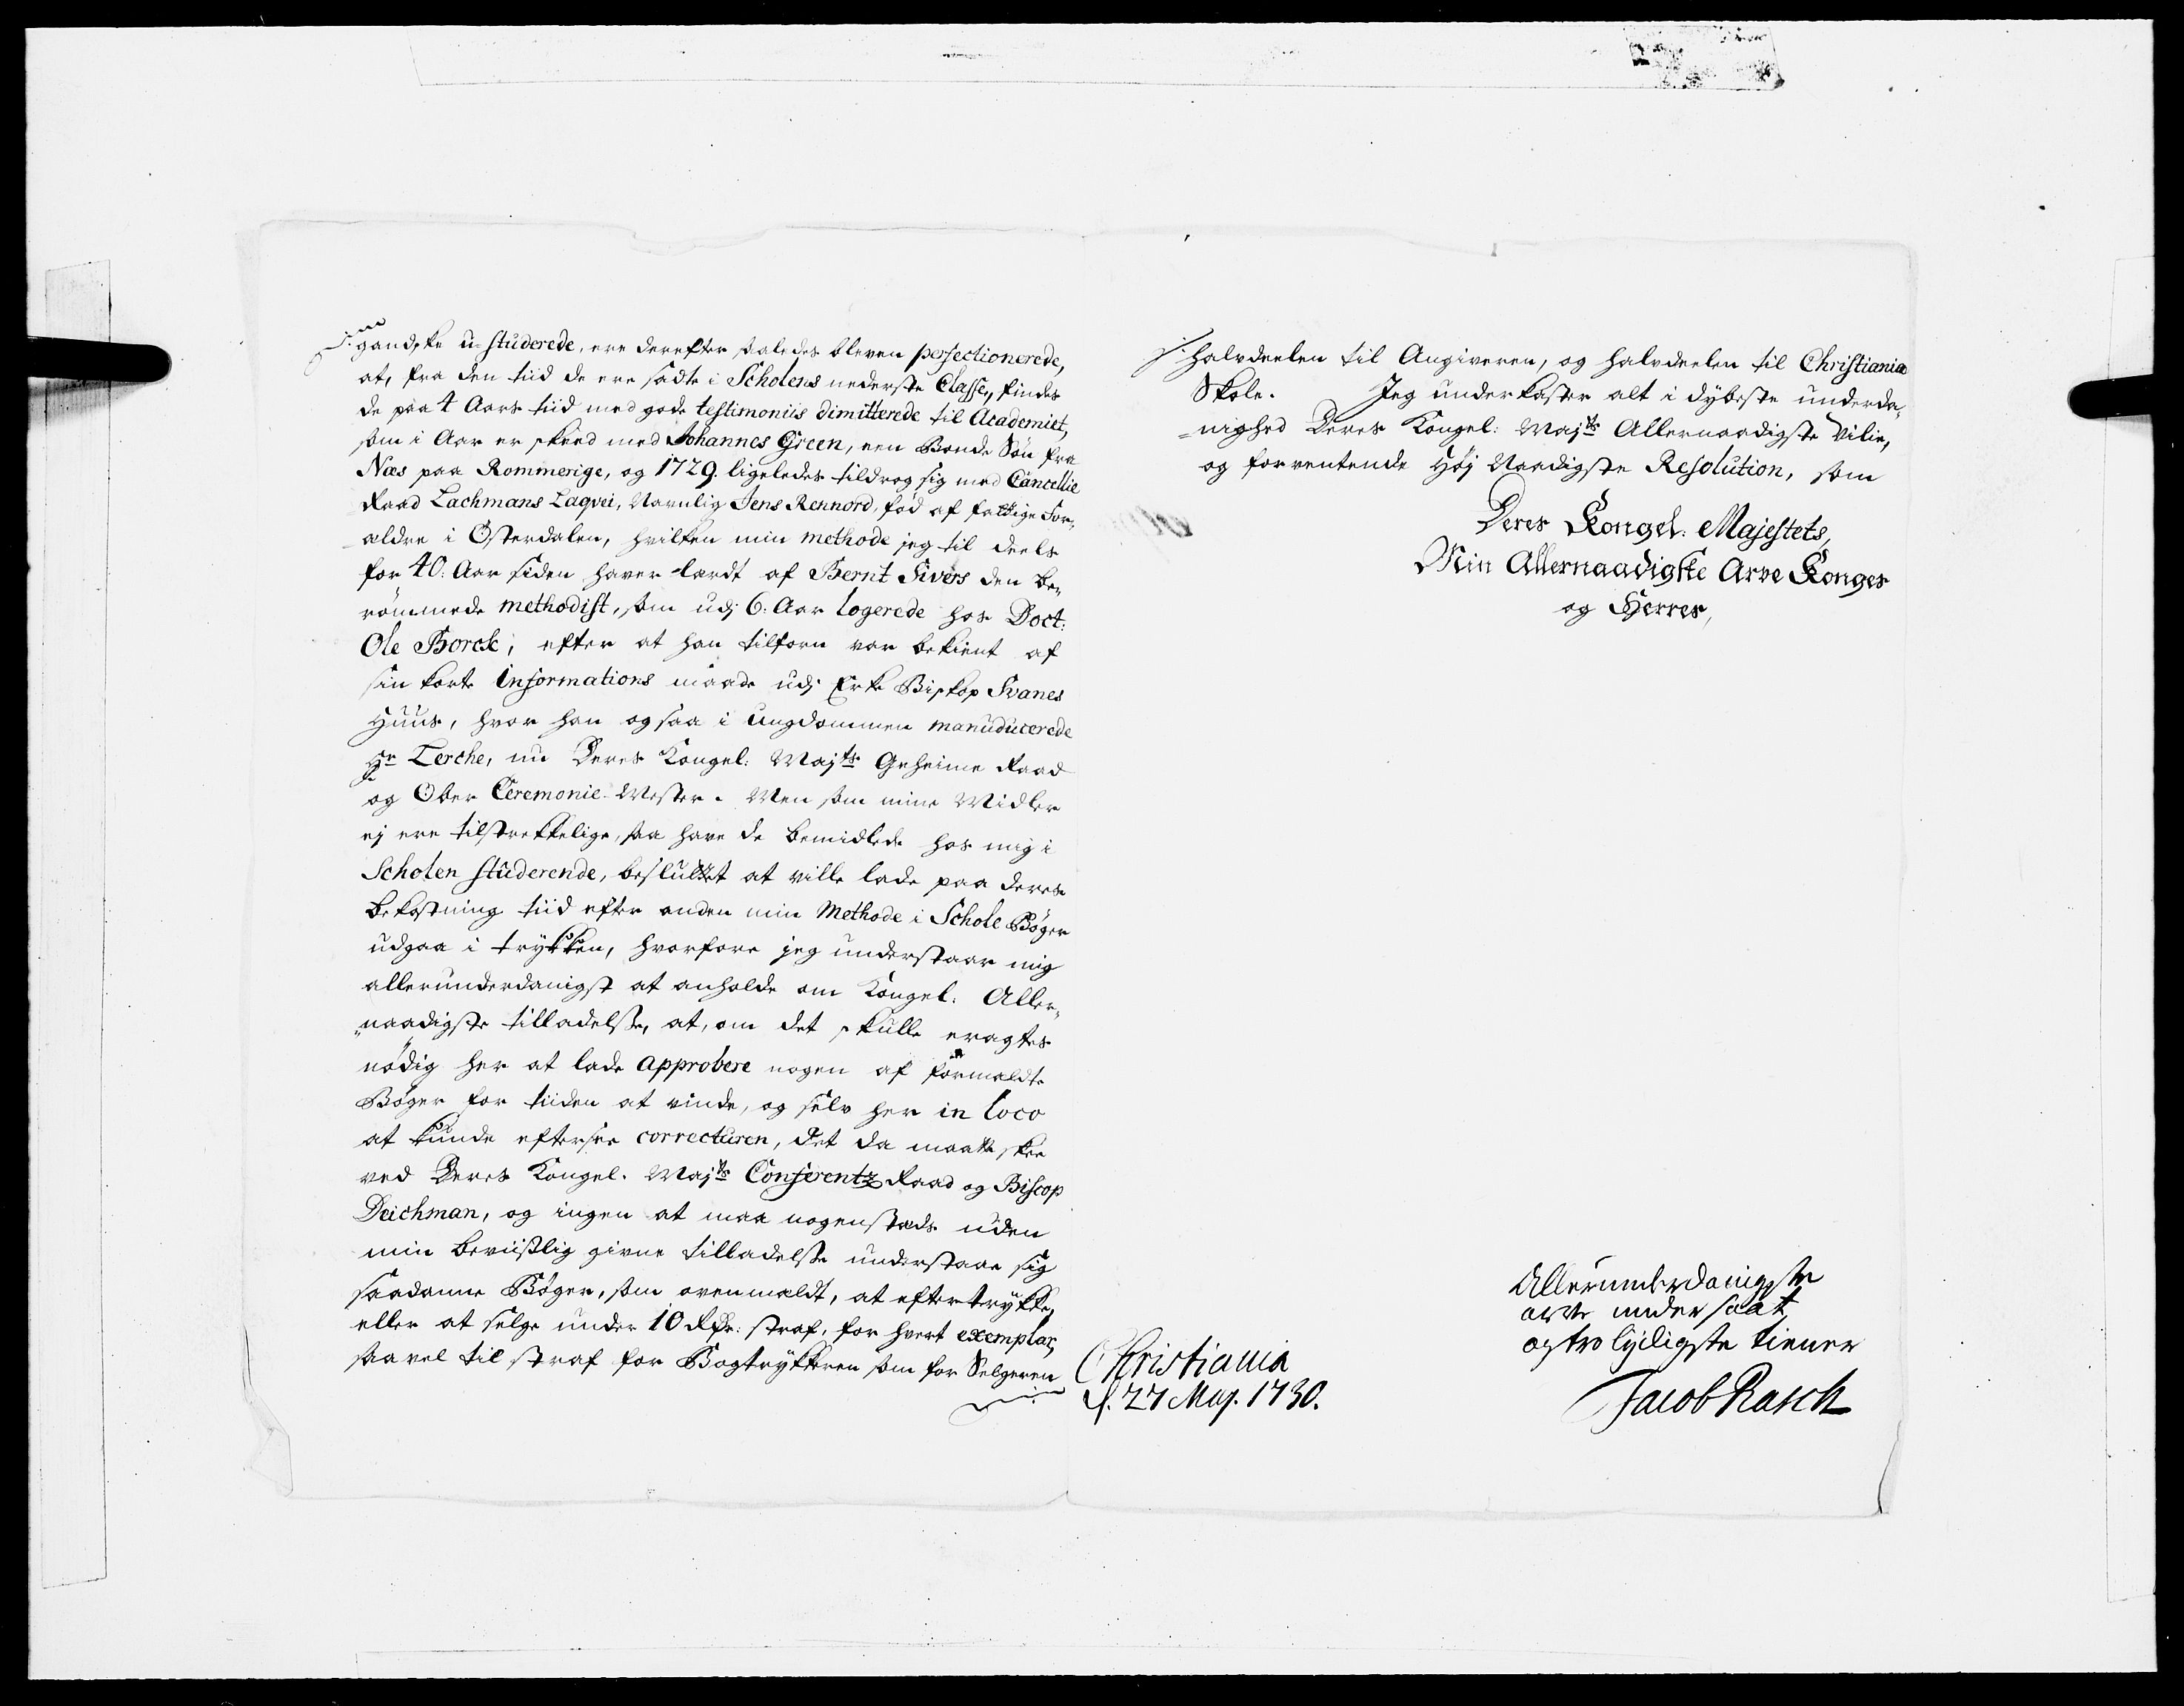 gandske u-studerede, ere derefter saaledes bleven perfectionerede,
at, fra den tiid de ere sadte i Scholens nederste Classe, findes
de paa 4 Aars tiid med gode testimoniis dimitterede til Academiet,
som i Aar er skeed med Johannes Green, een Bonde Søn fra
Næs paa Rommerige, og 1729. ligeledes tildrog sig med Cancellie
Raad Lachmans Laqvei, Navnlig Jens Rennord, fød af fattige For-
ældre i Østerdalen, hvilken min methode jeg til deels
for 40: Aar siden haver lærdt af Bernt Sivers den be-
rømmede methodist, som udj 6: Aar logerede hos Doct:
Ole Borck, efter at han tilforn var bekient af
sin korte Informations maade udj Erke Biskop Svanes
Huus, hvor han og saa i Ungdommen manuducerede
Hr Lerche, nu Deres Kongel: Majts Geheime Raad
og Ober Ceremonie-Mester. Men som mine Midler
ej ere tilstrekkelige, saa have de bemidlede hos mig i
Scholen studerende, besluttet at ville lade paa deres
bekostning tiid efter anden min Methode i Schole Bøger
udgaa i trykken, hvorfore jeg understaar mig
allerunderdanigst at anholde om Kongel: Aller-
naadigste tilladelsse, at, om det skulle eragtes
nødig her at lade approbere nogen af formældte
Bøger for tiiden at vinde, og selv her in loco
at kunde eftersee correcturen, det da maatte skee
ved Deres Kongel. Majts Conferentz Raad og Biscop
Deichman, og ingen at maa nogenstæds uden
min beviislig givne tilladelsse understaae sig
saadanne Bøger, som ovenmældt, at eftertrykke,
eller at selge under 10 Rdr: straf, for hvert exemplar,
saavel til straf for Bogtrykkeren som for Selgeren
halvdeelen til Angiveren, og halvdeelen til Christiania
Skole. Jeg underkaster alt i dybeste underda-
nighed Deres Kongel: Majts Allernaadigste Vilie,
og forventende Høj Naadigste Resolution, som
Deres Kongel: Majestets,
Min Allernaadigste Arve Konges
og Herres,
Allerunderdanigste
arve undersaat
og tro lydigste tiener
Christiania
d. 27 Maj. 1730.
Jacob Rasch